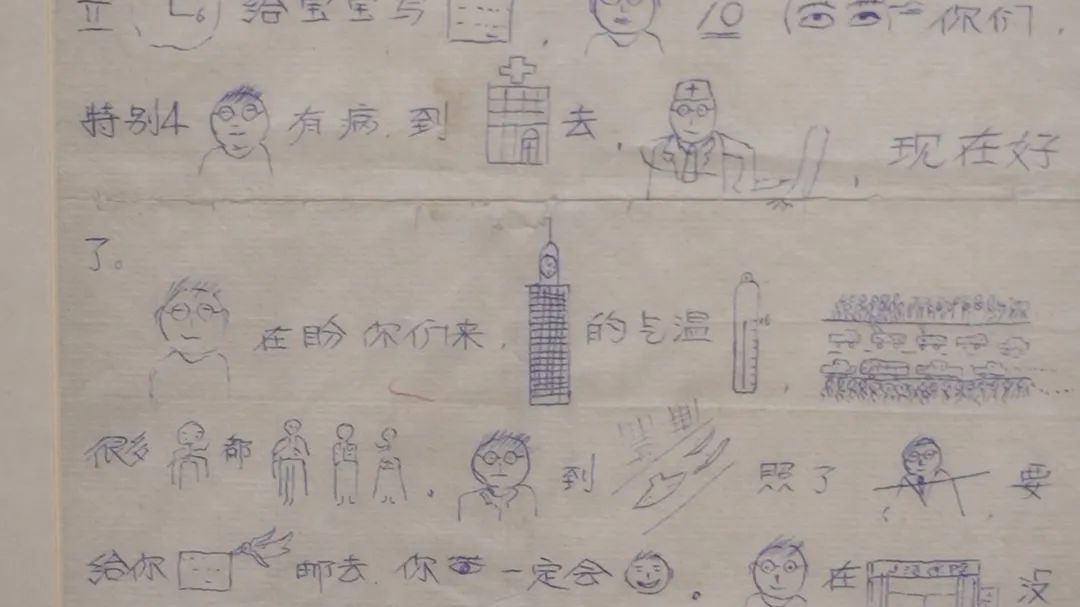 给宝宝写 10 你们,
特别4 有病,到 去, 现在好
了。
在盼你们来, 的气温
很多 都 到 照了 要
给你 邮去,你 一定会 。 在 没